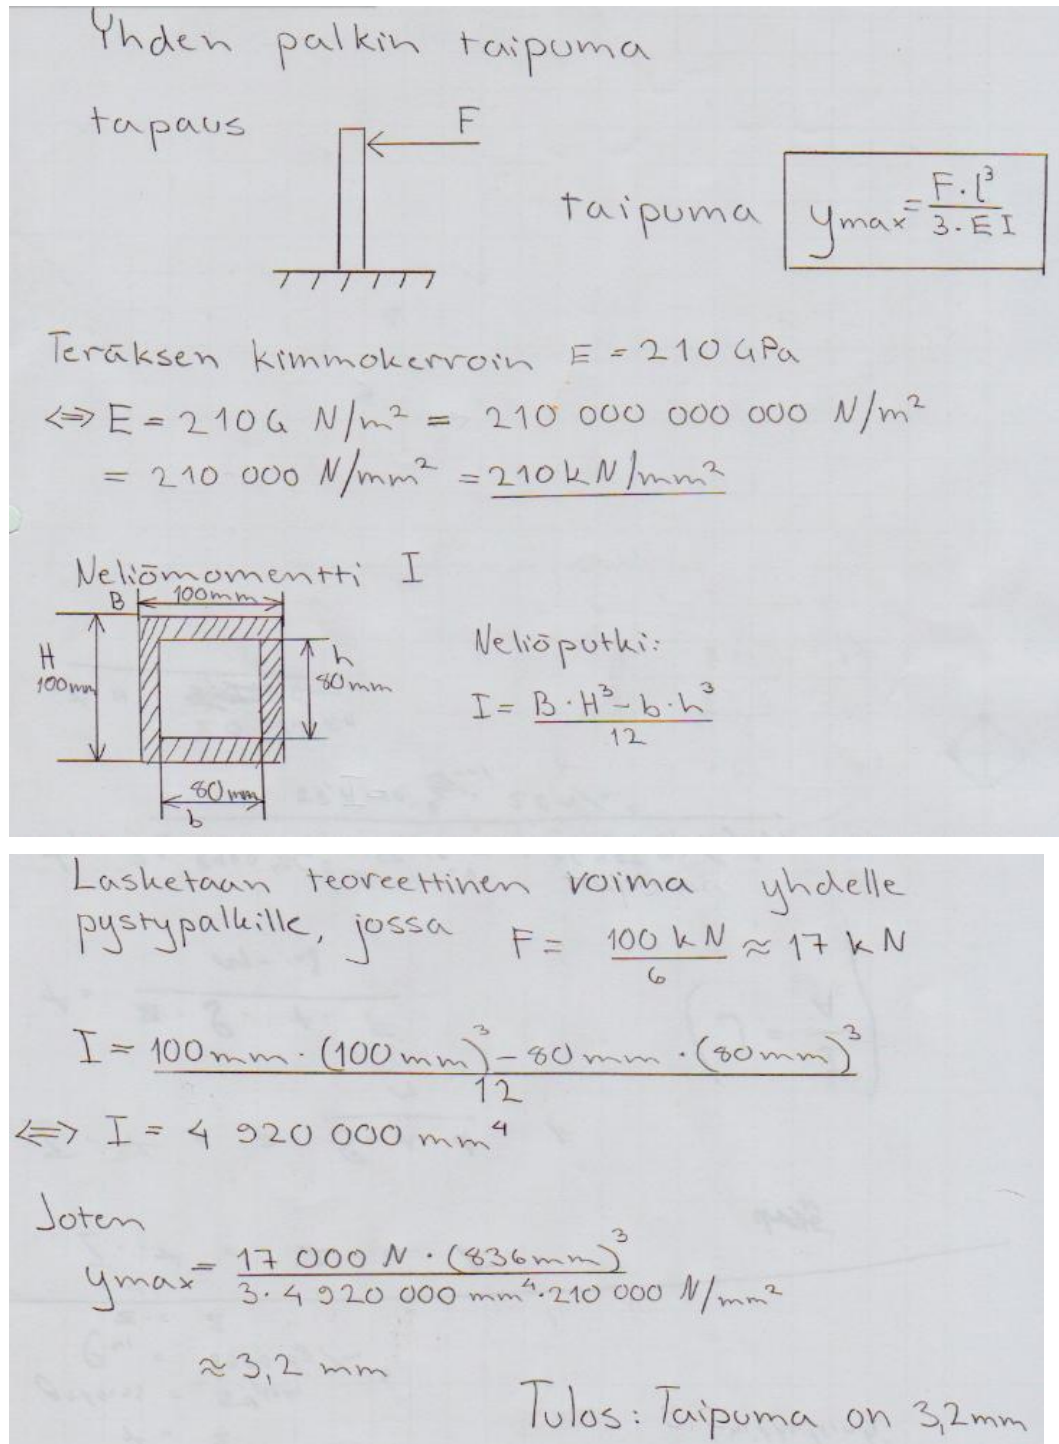 Yhden palkin taipuma
tapaus
F
taipuma ymax = F · l³ / 3 · E I
Teräksen kimmokerroin E = 210 GPa
⇔ E = 210 G N/m² = 210 000 000 000 N/m²
= 210 000 N/mm² = 210 kN/mm²
Neliömomentti I
B 100mm
H
100mm
h
80mm
80mm
b
Neliöputki:
I = B · H³ - b · h³ / 12
Lasketaan teoreettinen voima yhdelle
pystypalkille, jossa F = 100 kN / 6 ≈ 17 kN
I = 100mm · (100mm)³ - 80mm · (80mm)³ / 12
⇔ I = 4 920 000 mm⁴
Joten
ymax = 17 000 N · (836mm)³ / 3 · 4 920 000 mm⁴ · 210 000 N/mm²
≈ 3,2 mm
Tulos: Taipuma on 3,2mm